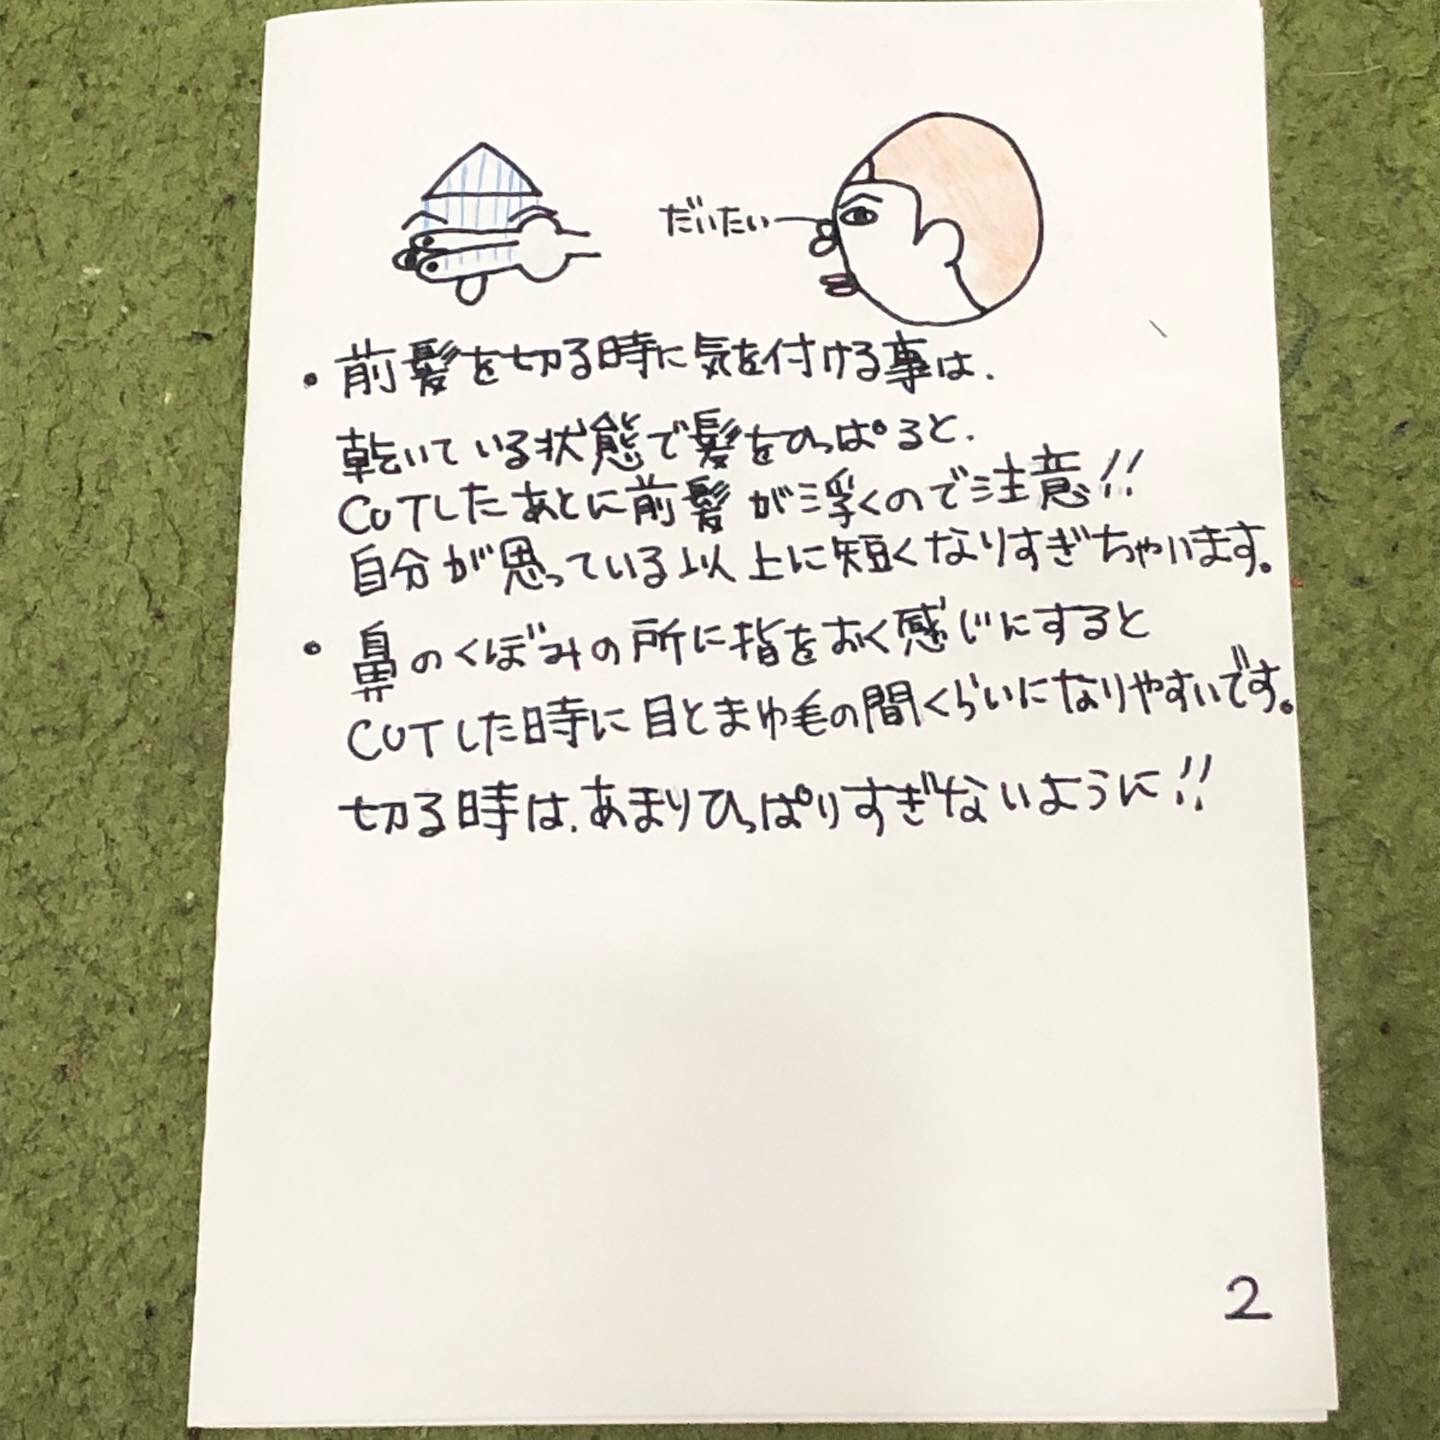 だいたい
・前髪を切る時に気を付ける事は、
乾いている状態で髪をひっぱると、
CUTしたあとに前髪が浮くので注意!!
自分が思っている以上に短くなりすぎちゃいます。
・鼻のくぼみの所に指をおく感じにすると
CUTした時に目とまゆ毛の間くらいになりやすいです。
切る時は、あまりひっぱりすぎないように!!
2